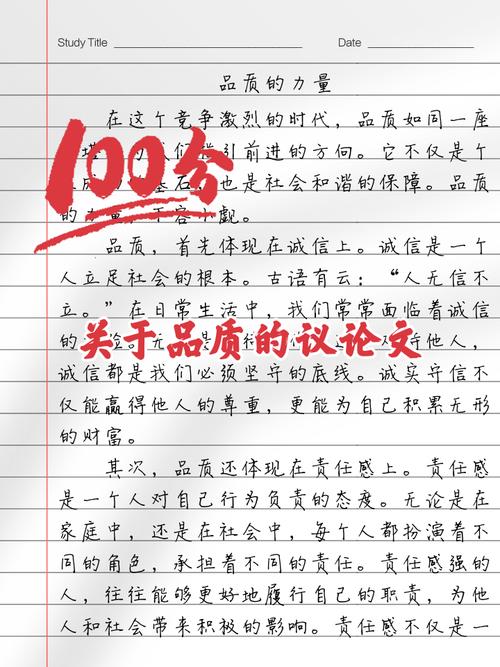 Study Title
Date
品质的力量
在这个竞争激烈的时代，品质如同一座
们 引前进的方向。它不仅是个
100分
基石，也是社会和谐的保障。品质
的 不容小觑。
品质，首先体现在诚信上。诚信是一个
人立足社会的根本。古语有云：“人无信不
立。”在日常生活中，我们常常面临着诚信
的 他人，
关于品质的议论文
诚信都是我们必须坚守的底线。诚实守信不
仅能赢得他人的尊重，更能为自己积累无形
的财富。
其次，品质还体现在责任感上。责任感
是一个人对自己行为负责的态度。无论是在
家庭中，还是在社会中，每个人都扮演着不
同的角色，承担着不同的责任。责任感强的
人，往往能够更好地履行自己的职责，为他
人和社会带来积极的影响。责任感不仅是一